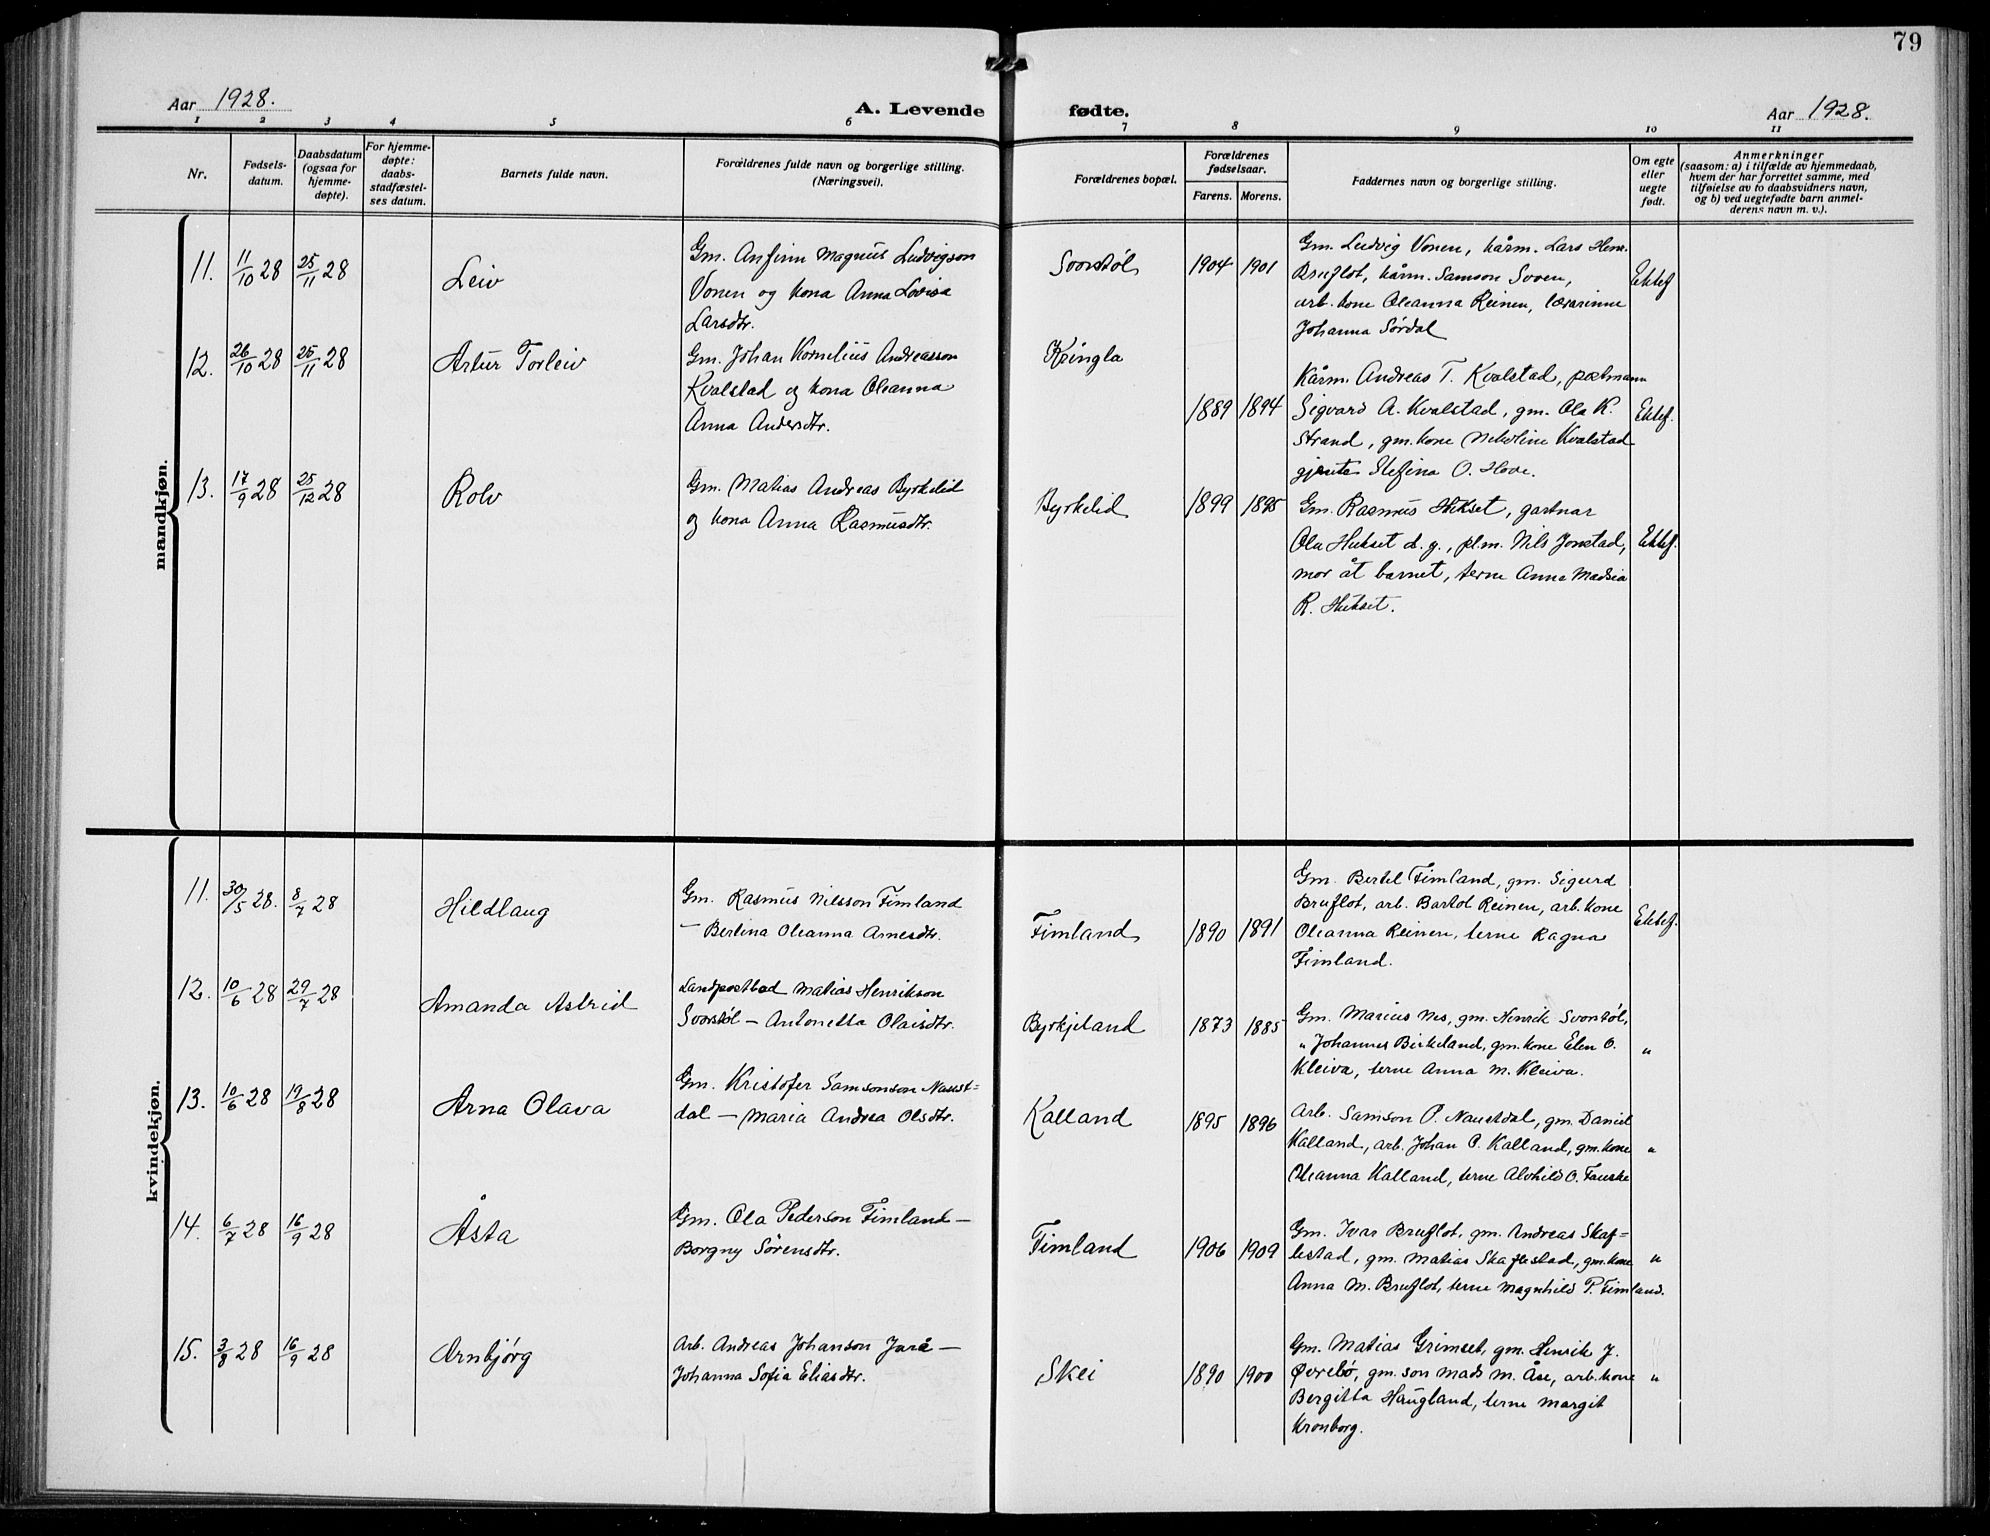 79
Aar 1928.
A. Levende fødte.
Aar 1928.
1 2 3 4 5 6 7 8 9 10 11
Nr.
Fødsels-
datum.
Daabsdatum
(ogsaa for
hjemme-
døpte).
For hjemme-
døpte:
daabs-
stadfæstel-
ses datum.
Barnets fulde navn.
Forældrenes fulde navn og borgerlige stilling.
(Næringsvei).
Forældrenes bopæl.
Forældrenes
fødselsaar.
Farens. Morens.
Faddernes navn og borgerlige stilling.
Om egte
eller
uegte
født.
Anmerkninger
(saasom: a) i tilfælde av hjemmedaab,
hvem der har forrettet samme, med
tilføielse av to daabsvidners navn,
og b) ved uegtefødte barn anmel-
derens navn m. v.).
mandkjøn.
11. 11/10 28 25/11 28
Leiv
Gm. Anfinn Magnus Ludvigson
Vonen og kona Anna Lovisa
Larsdtr.
Svorstøl
1904 1901
Gm. Ludvig Vonen, kårm. Lars Henr.
Bruflot, kårm. Samson Svoen,
arb. kone Oleanna Reinen, lærarinne
Johanna Sørdal
Ektef
12. 26/10 28 25/11 28
Artur Torleiv
Gm. Johan Kornelius Andreasson
Kvalstad og kona Oleanna
Anna Andersdtr.
Kringla
1889 1894
Kårm. Andreas T. Kvalstad, postmann
Sigvard A. Kvalstad, gm. Ola K.
Strand, gm. kone Nikoline Kvalstad
gjenta Stefina O. Hove.
Ektef.
13. 17/9 28 25/12 28
Rolv
Gm. Matias Andreas Byrkelid
og kona Anna Rasmusdtr.
Byrkelid
1899 1895
Gm. Rasmus Hukset, gartnar
Ola Hukset d. y., pl.m. Nils Jonstad,
mor åt barnet, terne Anna Madsia
R. Hukset.
Ektef.
kvindekjøn.
11. 30/5 28. 8/7 28
Hildlaug
Gm. Rasmus Nilsson Fimland
— Bertina Oleanna Arnesdtr.
Fimland
1890 1891
Gm. Bertel Fimland, gm. Sigurd
Bruflot, arb. Bartol Reinen, arb. kone
Oleanna Reinen, terne Ragna
Fimland.
Ektef.
12. 10/6 28 29/7 28
Amanda Astrid
Landpostbod Matias Henrikson
Svorstøl — Antonetta Olaisdtr.
Byrkjeland
1873 1885
Gm. Marius Nes, gm. Henrik Svorstøl,
" Johannes Birkeland, gm. kone Elen O.
Kleiva, terne Anna M. Kleiva.
"
13. 10/6 28 19/8 28
Arna Olava
Gm. Kristofer Samsonson Naust=
dal — Maria Andrea Olsdtr.
Kalland
1895 1896
Arb. Samson P. Naustdal, gm. Daniel
Kalland, arb. Johan P. Kalland, gm. kone
Oleanna Kalland, terne Alvhild O. Fauske
"
14. 6/7 28 16/9 28
Åsta
Gm. Ola Pederson Fimland —
Borgny Sørensdtr.
Fimland
1906 1909
Gm. Ivar Bruflot, gm. Andreas Skaf=
lestad, gm. Matias Skaflestad, gm. kone
Anna M. Bruflot, terne Magnhild P. Fimland.
"
15. 3/8 28 16/9 28
Arnbjørg
Arb. Andreas Johanson Jarå —
Johanna Sofia Eliasdtr.
Skei
1890 1900
Gm. Matias Grimset, gm. Henrik J.
Øvrebø, gm. son Mads M. Åse, arb. kone
Bergitta Haugland, terne Margit
Kronborg.
"